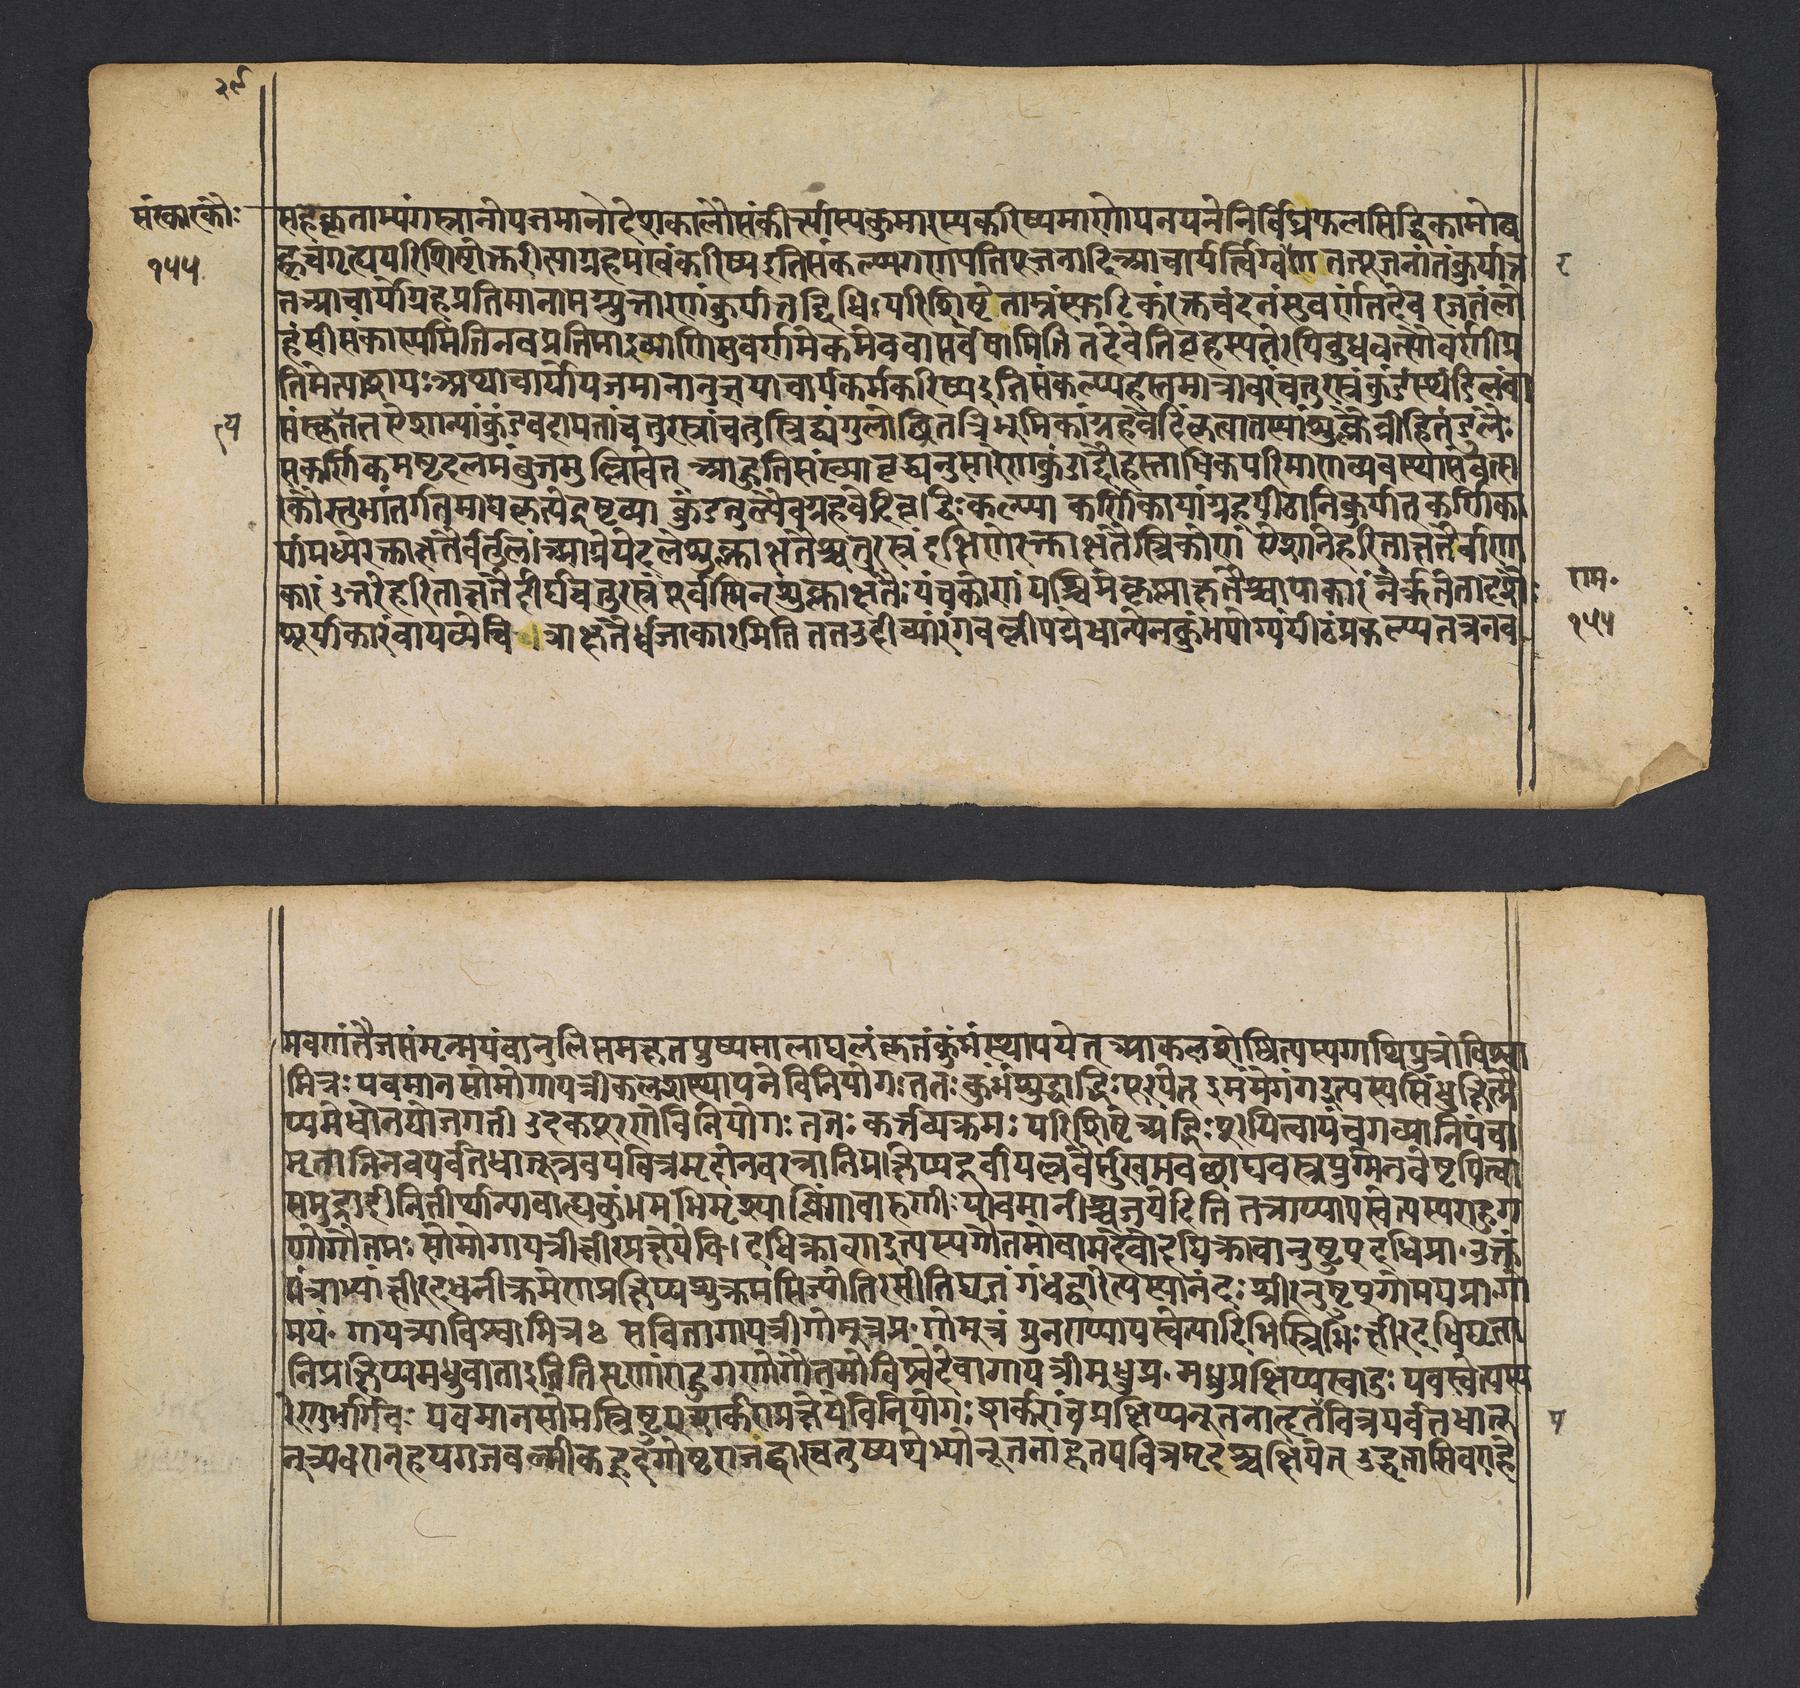 २९
संस्कारकौः
१५५
सहकृताभ्यंगस्नानोयजमानोदेशकालौसंकीर्त्यास्यकुमारस्यकरिष्यमाणोपनयनेनिर्विघ्नफलसिद्धिकामोब
ह्वृचगृह्यपरिशिष्टोक्तरीत्याग्रहमखंकरिष्यइतिसंकल्प्यगणपतिपूजनादिआचार्यर्त्विग्वरणतत्पूजनांतंकुर्यात्त
तआचार्योग्रहप्रतिमानामग्न्युत्तारणंकुर्यात्तद्विधिःपरिशिष्टेताम्रंस्फटिकंरक्तचंदनंसुवर्णंतदेवरजतंलो
हंसीसंकांस्यमितिनवप्रतिमाद्रव्याणिसुवर्णमेकमेववासर्वेषामिति तदेवेतिबृहस्पतेरपिबुधवत्सौवर्णीप्र
तिमेत्याशयःअथाचार्योयजमानानुज्ञयाचार्यकर्मकरिष्यइतिसंकल्प्यहस्तमात्रावरंचतुरस्रंकुंडंस्थंडिलंवा
संस्कृत्यततऐशान्यांकुंडवदायतांचतुरस्रांचतुस्त्रिद्व्यंगुलोच्छ्रितत्रिभूमिकांग्रहवेदिंकृत्वातस्यांशुक्लैव्रीहितंडुलैः
सकर्णिकमष्टदलमंबुजमुल्लिखेत् आहुतिसंख्यावृद्ध्यनुसारेणकुंडादेर्द्विहस्ताधिकपरिमाणव्यवस्थासंवत्स
रकौस्तुभांतर्गतमाघकृत्येद्रष्टव्या कुंडतुल्यैवग्रहवेदिवृद्धिःकल्प्या कर्णिकायांग्रहपीठानिकुर्यात्कर्णिका
यांमध्येरक्ताक्षतैर्वर्तुलं।आग्नेयेदलेशुक्लाक्षतैश्चतुरस्रं दक्षिणेरक्ताक्षतैस्त्रिकोणं ऐशानेहरिताक्षतैर्बाणा
कारंउत्तरेहरिताक्षतैर्दीर्घचतुरस्रंपूर्वस्मिन्शुक्लाक्षतैःपंचकोणंपश्चिमेकृष्णाक्षतैश्चापाकारंनैर्ऋतेतादृशैः
शूर्पाकारंवायव्येचित्राक्षतैर्ध्वजाकारमिति ततउदीच्यांरंगवल्लीपद्मेधान्येनकुंभयोग्यंपीठंप्रकल्प्यतत्रनव
राम॰
१५५
मव्रणंतैजसंमृन्मयंवानुलिप्तमक्षतपुष्पमालाद्यलंकृतंकुंभंस्थापयेत् आकलशेष्वित्यस्यगाथिपुत्रोविश्वा
मित्रः पवमानसोमोगायत्रीकलशस्थापनेविनियोगः ततः कुंभंशुद्धाद्भिः पूरयेत् इमंमेगंगइत्यस्यसिंधुक्षित्प्रै
यमेधोनद्योजगती उदकपूरणेविनियोगः ततः कर्तव्यक्रमः परिशिष्टे अद्भिःपूरयित्वापंचगव्यानिपंचा
मृतानिनवपर्वतधातून्नवपवित्रमृदोनवरत्नानिप्रक्षिप्यदूर्वापल्लवैर्मुखमवच्छाद्यवस्त्रयुग्मेनवेष्टयित्वा
समुद्रादीनितीर्थान्यावाह्यकुंभमभिमृश्याब्लिंगावारुणीःपावमानीश्चजपेदिति तत्राप्यायस्वेत्यस्यराहूग
णोगौतमः सोमोगायत्रीक्षीरप्रक्षेपेवि। दधिक्राव्णइत्यस्यगौतमोवामदेवोदधिक्रावानुष्टुप्दधिप्र।उक्त
मंत्राभ्यांक्षीरदधनीक्रमेणप्रक्षिप्यशुक्रमसिज्योतिरसीतिघृतं गंधद्वारेत्यस्यानंदः श्रीरनुष्टुप्गोमयप्र।गो
मयं॰ गायत्र्याविश्वामित्रः सवितागायत्रीगोमूत्रप्र॰ गोमूत्रं पुनराप्यायस्वेत्यादिभिस्त्रिभिः क्षीरदधिघृता
निप्रक्षिप्यमधुवाताइतितिसृणांराहूगणोगौतमोविश्वेदेवागायत्रीमधुप्र॰ मधुप्रक्षिप्यस्वादुः पवस्वेत्यस्य
रेणुर्भार्गवः पवमानसोमस्त्रिष्टुप्शर्कराप्रक्षेपेविनियोगः शर्करांचप्रक्षिप्यनूतनाहृतेविन्नपर्वतधातू
न्अवरान्हयगजवल्मीकह्रदगोष्ठराजद्वारचतुष्पथेभ्योनूतनाहृतपवित्रमृदश्चक्षिपेत् उद्धृतासिवराहे